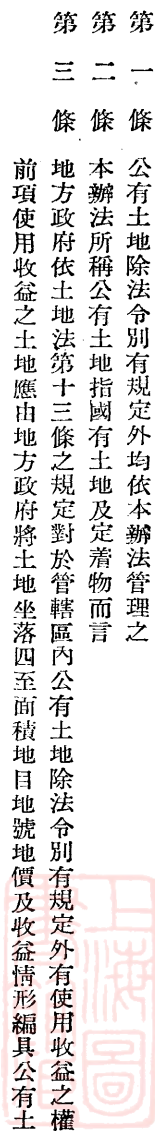 第一條　公有土地除法令別有規定外均依本辦法管理之
第二條　本辦法所稱公有土地指國有土地及定着物而言
第三條　地方政府依土地法第十三條之規定對於管轄區內公有土地除法令別有規定外有使用收益之權
前項使用收益之土地應由地方政府將土地坐落四至面積地目地號地價及收益情形編具公有土
上海圖